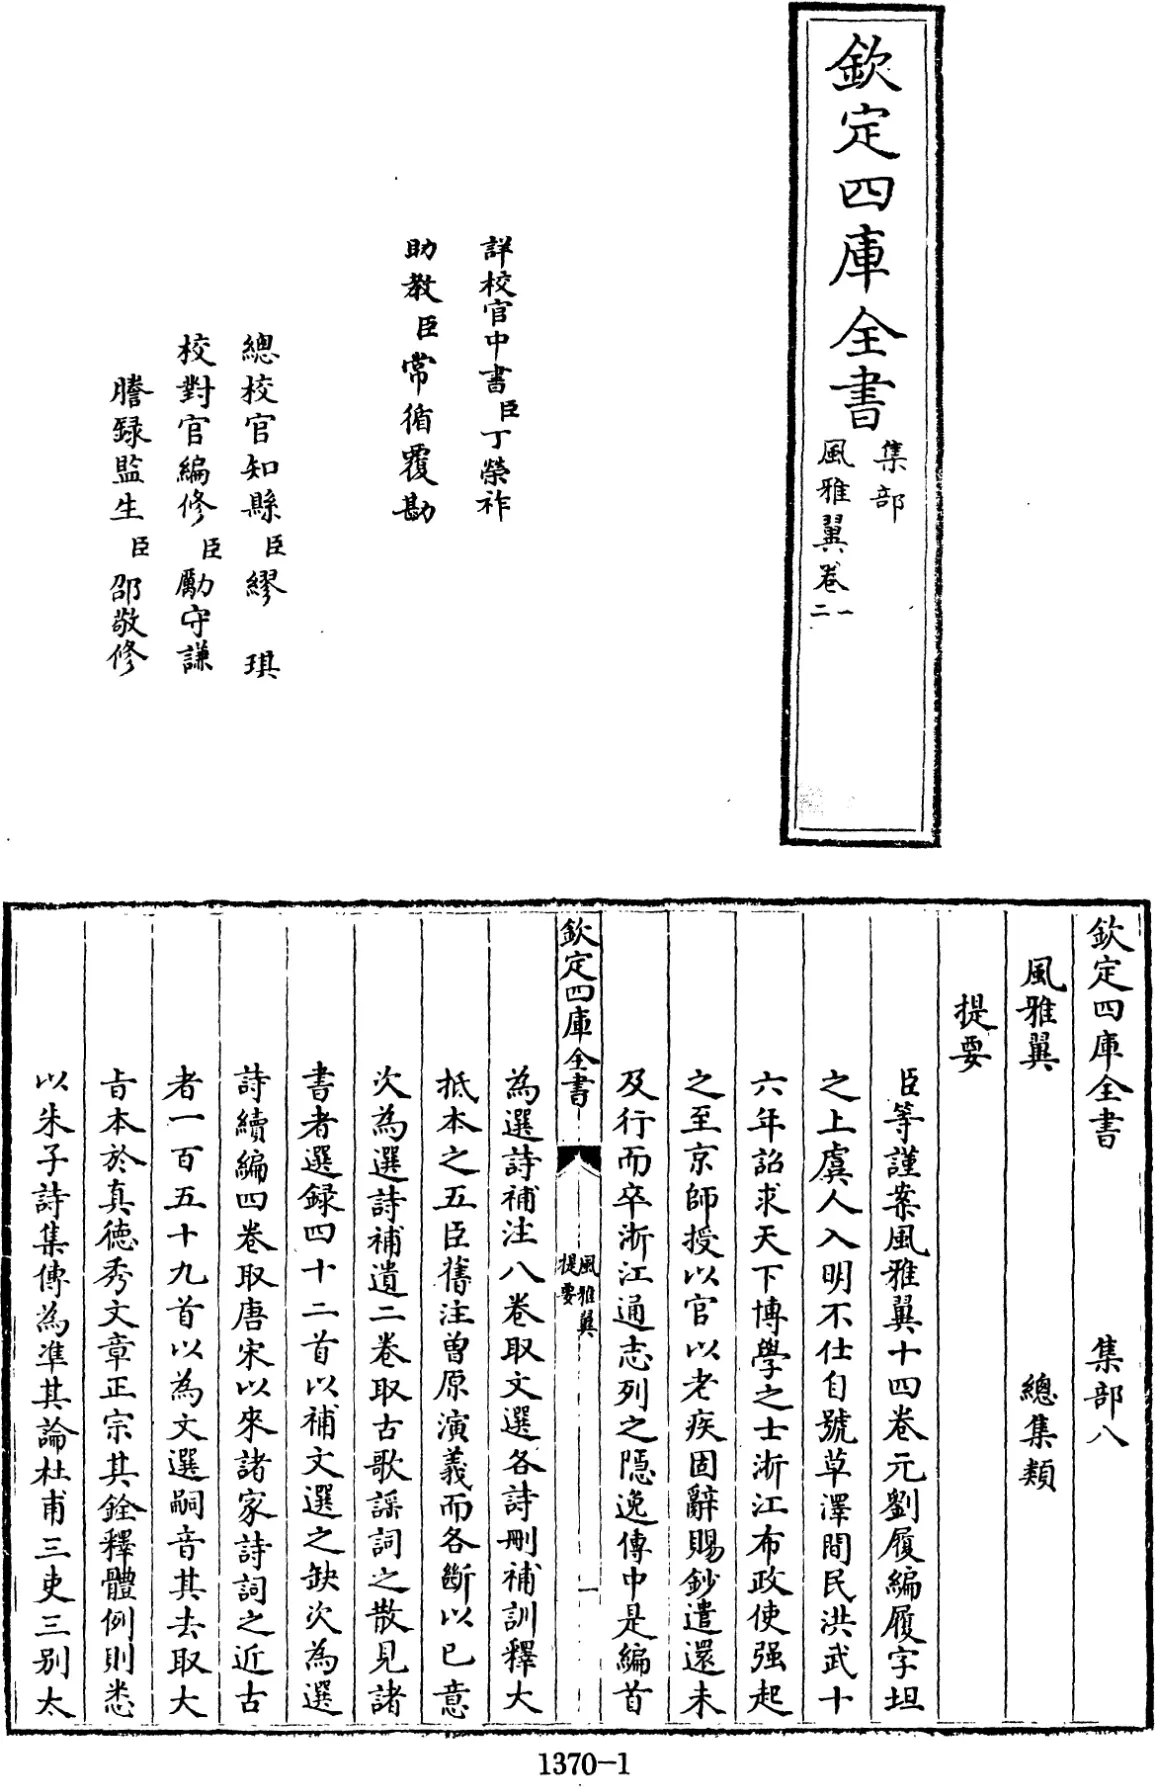 欽定四庫全書
集部
風雅翼卷一二
詳校官中書臣丁榮祚
助教臣常循覆勘
總校官知縣臣繆琪
校對官編修臣勵守謙
謄録監生臣邵敬修
欽定四庫全書 集部八
風雅翼 總集類
提要
臣等謹案風雅翼十四卷元劉履編履字坦
之上虞人入明不仕自號草澤間民洪武十
六年詔求天下博學之士浙江布政使强起
之至京師授以官以老疾固辭賜鈔遣還未
及行而卒浙江通志列之隠逸傳中是編首
欽定四庫全書
風雅翼
提要
一
為選詩補注八卷取文選各詩刪補訓釋大
抵本之五臣舊注曽原演義而各斷以已意
次為選詩補遺二卷取古歌謡詞之散見諸
書者選録四十二首以補文選之缺次為選
詩續編四卷取唐宋以來諸家詩詞之近古
者一百五十九首以為文選嗣音其去取大
旨本於真德秀文章正宗其銓釋體例則悉
以朱子詩集傳為凖其論杜甫三吏三别太
1370-1